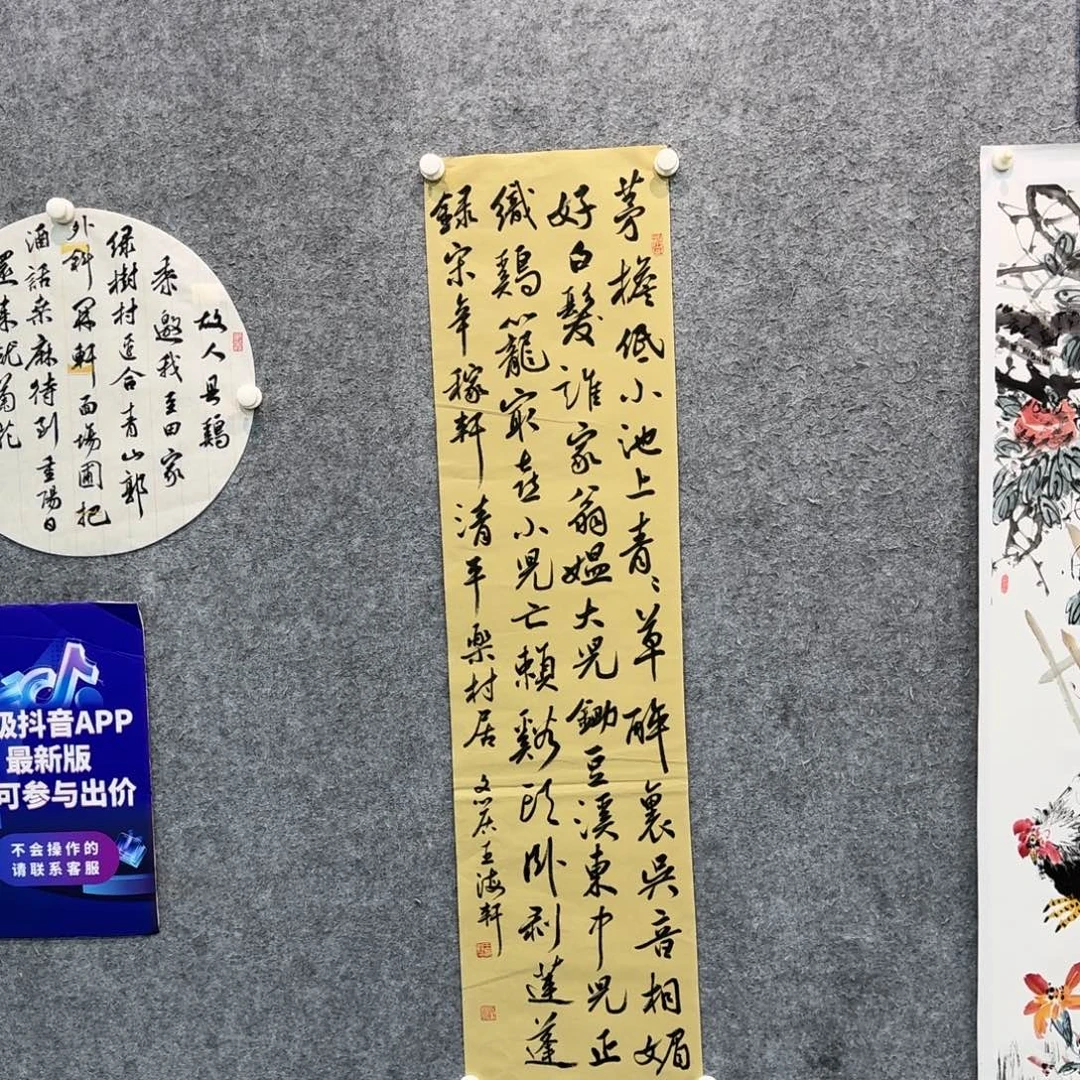 茅檐低小池上青〻草醉裏吳音相媚
好白髮誰家翁媼大兒鋤豆溪東中兒正
織鷄籠最喜小兒亡賴谿頭卧剥蓮蓬
録宋辛稼軒清平樂村居
王海軒
故人具鷄
黍邀我至田家
绿樹村邊合青山郭
外斜開軒面場圃把
酒話桑麻待到重陽日
還来就菊花
级抖音APP
最新版
可参与出价
不会操作的
请联系客服